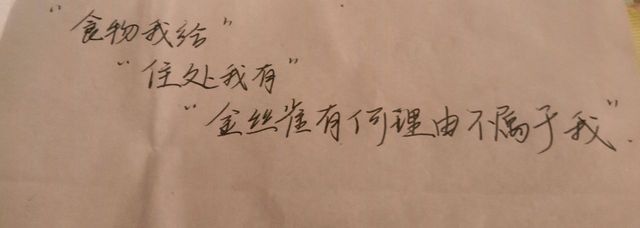 "食物我给"
"住处我有"
"金丝雀有何理由不属于我".